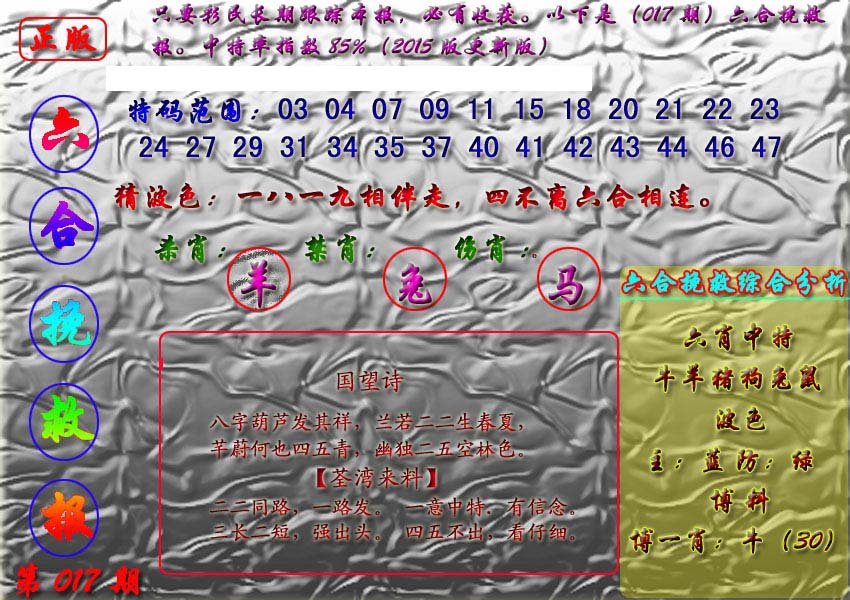 正版
只要彩民长期跟踪本报，必有收获。以下是（017期）六合挽救
报。中特率指数85%（2015版更新版）
六合挽救报
第017期
特码范围：03 04 07 09 11 15 18 20 21 22 23
24 27 29 31 34 35 37 40 41 42 43 44 46 47
猜波色：一八一九相伴走，四不离六合相连。
杀肖：羊 禁肖：兔 伤肖：马
国望诗
八字葫芦发其祥，兰若二二生春夏，
芊蔚何也四五青，幽独二五空林色。
【荃湾来料】
二二同路，一路发。 一意中特．有信念。
三长二短，强出头。 四五不出，看仔细。
六合挽救综合分析
六肖中特
牛羊猪狗兔鼠
波色
主：蓝防：绿
博料
博一肖：牛（30）